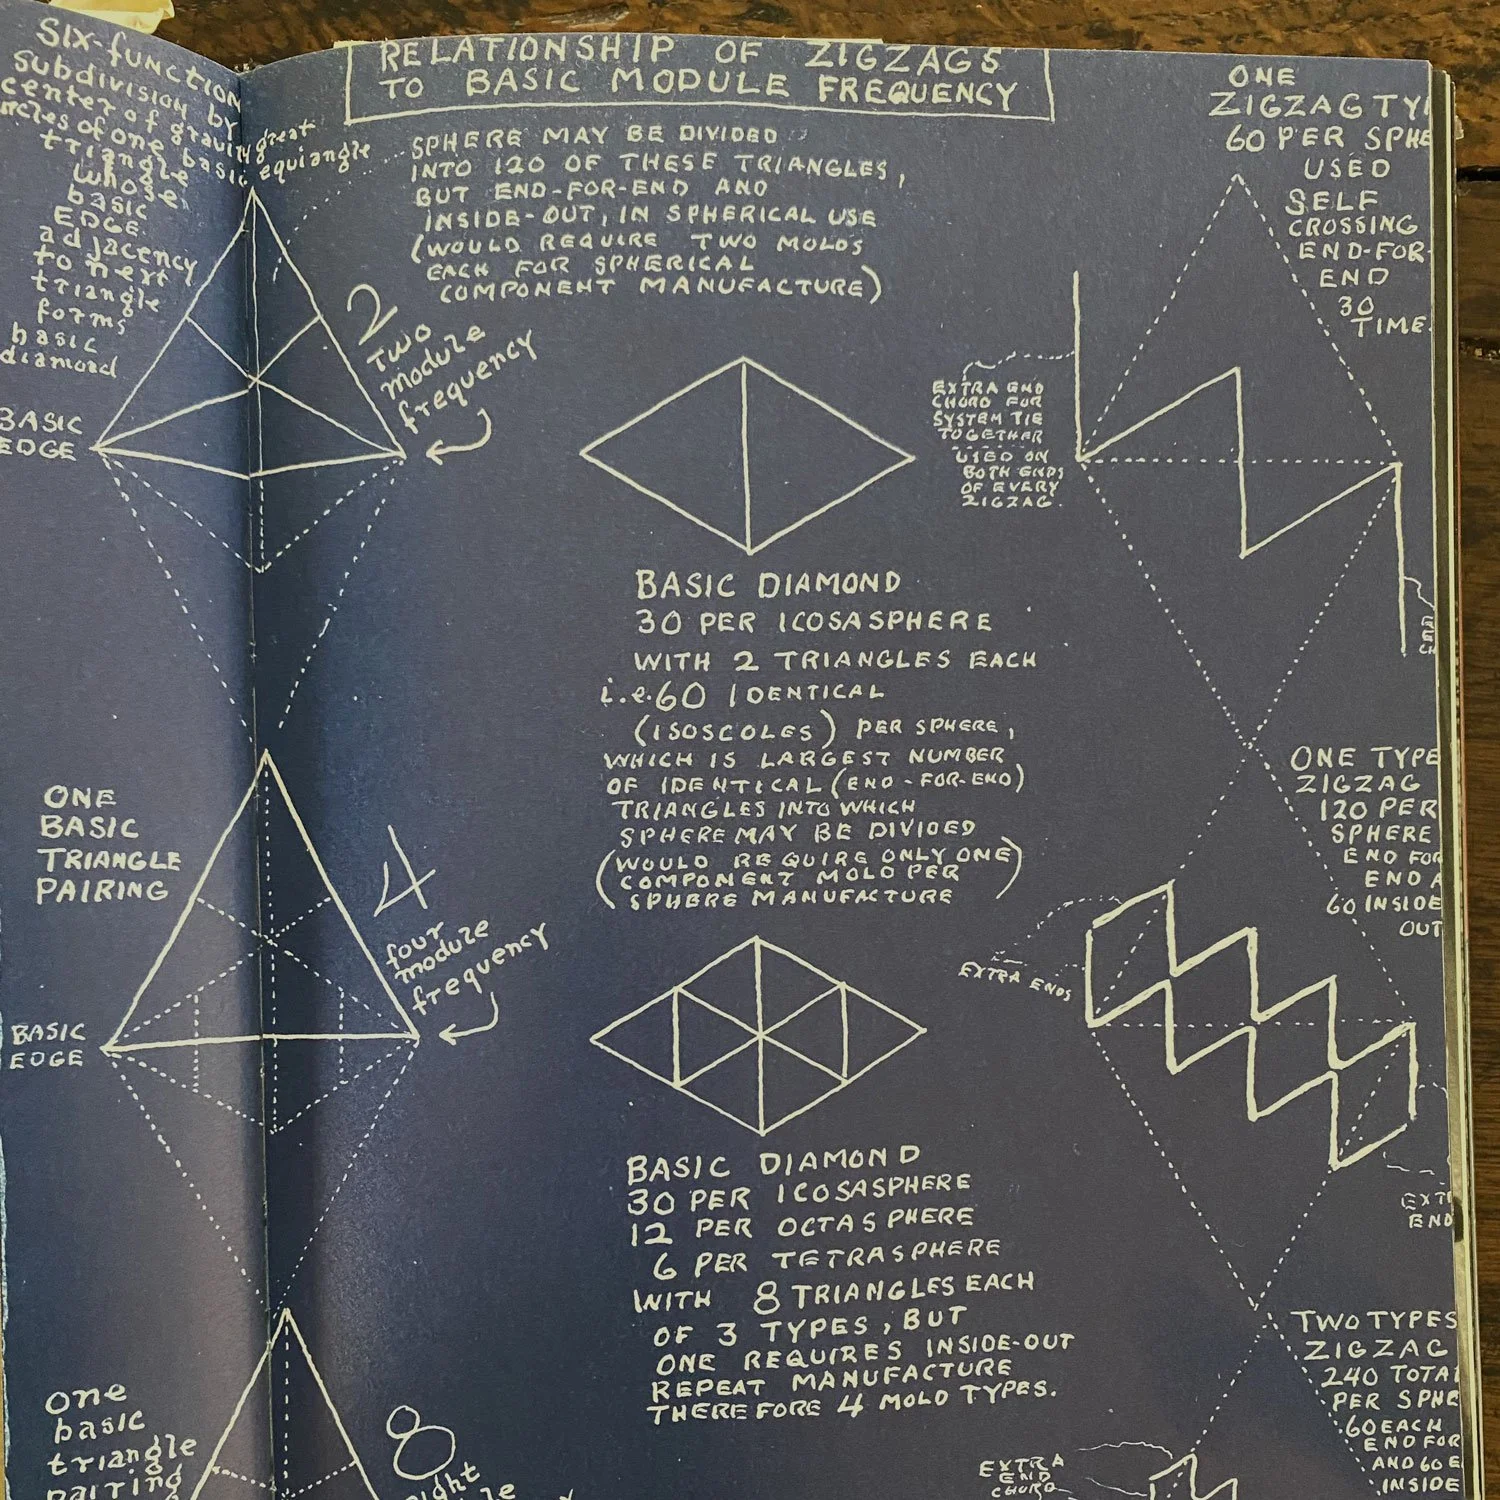 RELATIONSHIP OF ZIGZAGS
TO BASIC MODULE FREQUENCY
SIX-function
subdivision by
center of gravity great
circles of one basic equiangle
triangle
whose
basic
EDGE
adjacency
to next
triangle
forms
basic
diamond
BASIC
EDGE
2
TWO
module
frequency
SPHERE MAY BE DIVIDED
INTO 120 OF THESE TRIANGLES,
BUT END-FOR-END AND
INSIDE-OUT, IN SPHERICAL USE
(WOULD REQUIRE TWO MOLDS
EACH FOR SPHERICAL
COMPONENT MANUFACTURE)
ONE
ZIGZAG TY
60 PER SPHE
USED
SELF
CROSSING
END-FOR-
END
30
TIME
EXTRA END
CHORD FOR
SYSTEM TIE
TOGETHER
USED ON
BOTH ENDS
OF EVERY
ZIGZAG.
BASIC DIAMOND
30 PER ICOSASPHERE
WITH 2 TRIANGLES EACH
i.e. 60 IDENTICAL
(ISOSCOLES) PER SPHERE,
WHICH IS LARGEST NUMBER
OF IDENTICAL (END-FOR-END)
TRIANGLES INTO WHICH
SPHERE MAY BE DIVIDED
(WOULD REQUIRE ONLY ONE)
(COMPONENT MOLD PER)
SPHERE MANUFACTURE
ONE
BASIC
TRIANGLE
PAIRING
BASIC
EDGE
4
four
module
frequency
ONE TYPE
ZIGZAG
120 PER
SPHERE
END FOR
END A
60 INSIDE
OUT
EXTRA ENDS
EXT
END
BASIC DIAMOND
30 PER ICOSASPHERE
12 PER OCTASPHERE
6 PER TETRASPHERE
WITH 8 TRIANGLES EACH
OF 3 TYPES, BUT
ONE REQUIRES INSIDE-OUT
REPEAT MANUFACTURE
THEREFORE 4 MOLD TYPES.
one
basic
triangle
pairing
8
TWO TYPES
ZIGZAG
240 TOTA
PER SPHE
60 EACH
END FOR
AND 60 E
INSIDE
EXTRA
END
CHORD